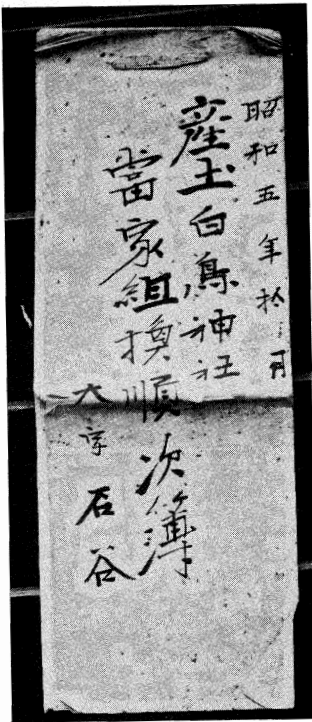 昭和五年拾月
産土白鳥神社
當家組換順次簿
大字石谷